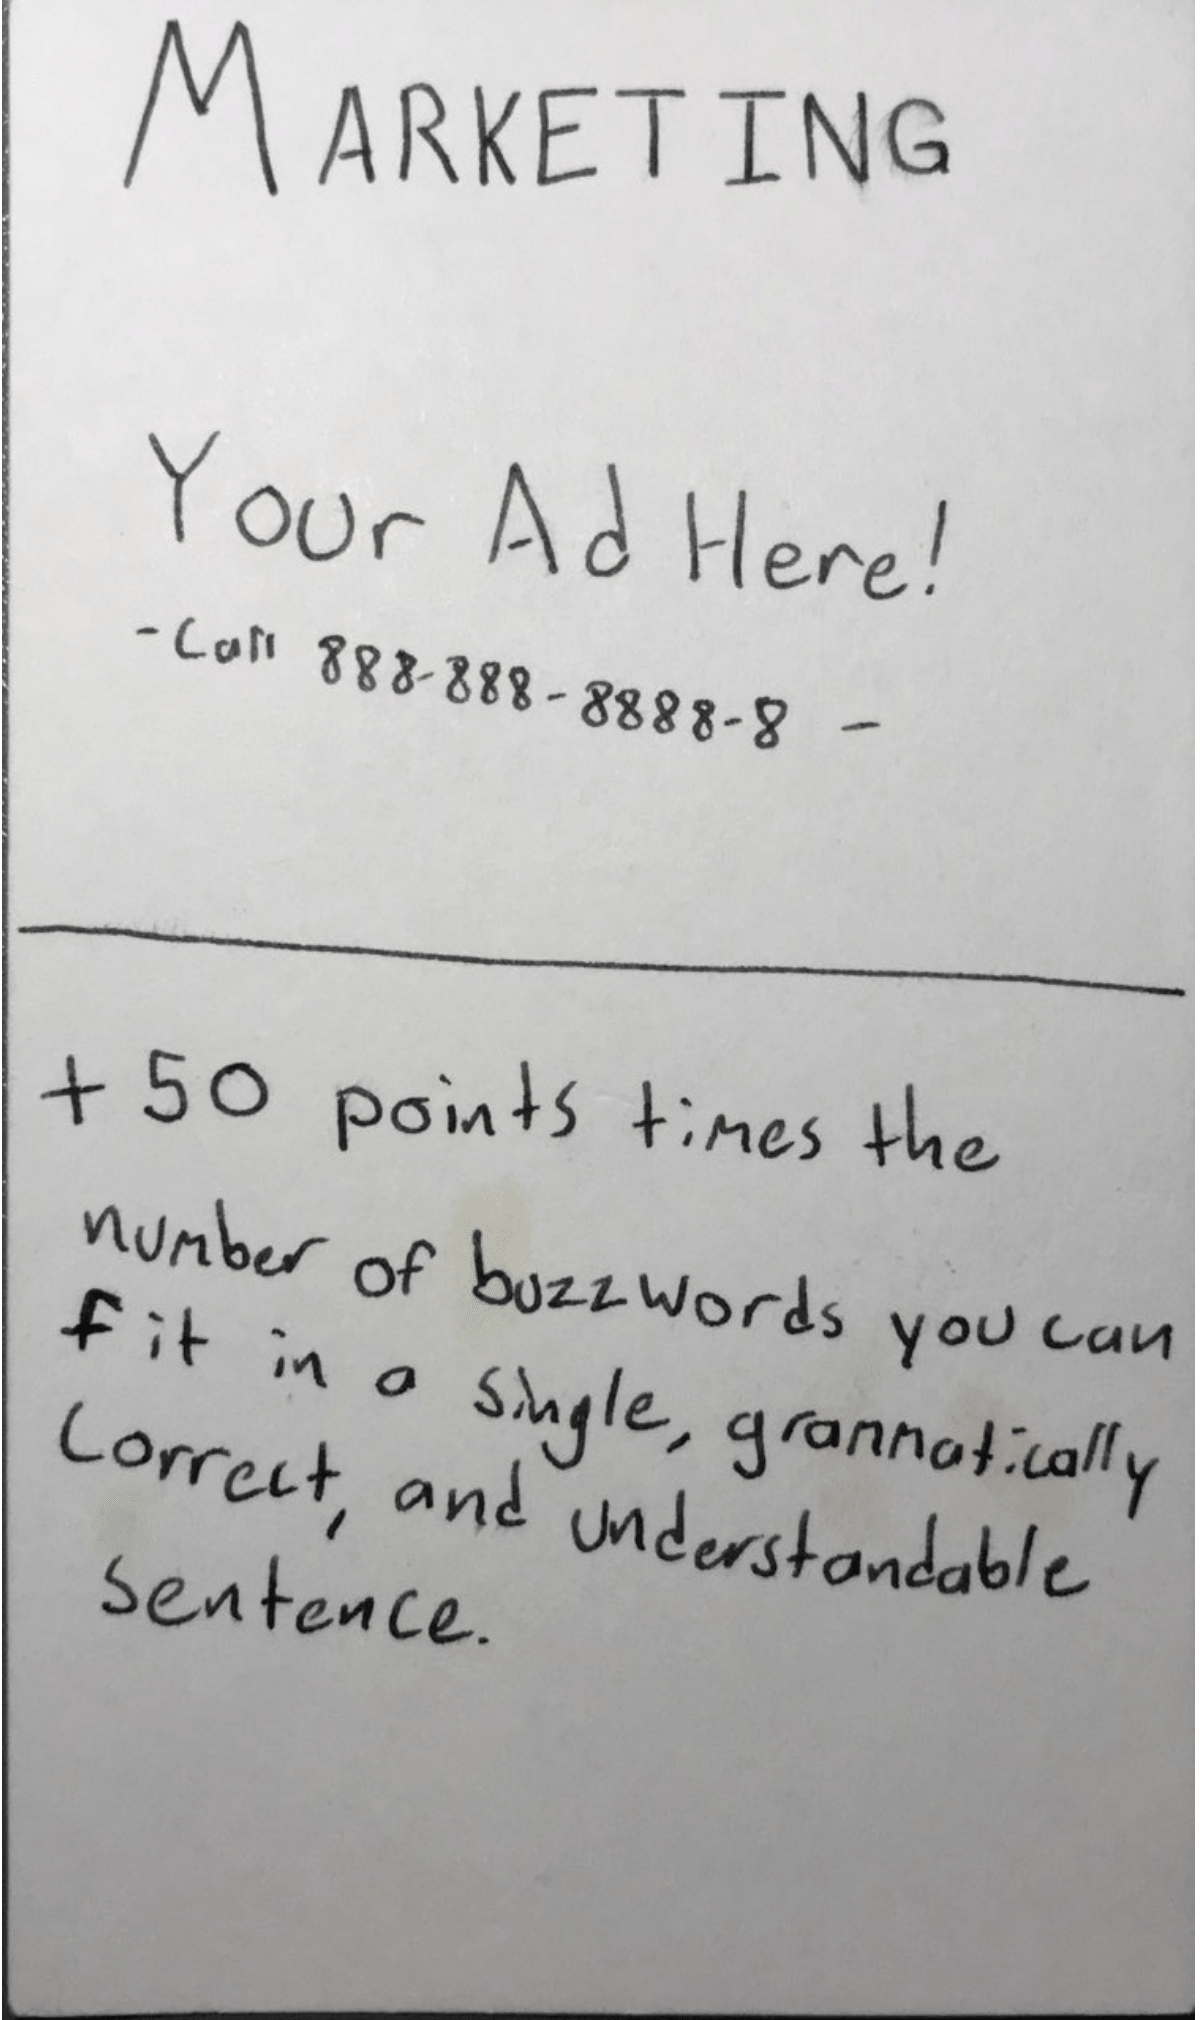 MARKETING
Your Ad Here!
-Call 888-888-8888-8 -
+50 points times the
number of buzzwords you can
fit in a single, grammatically
correct, and understandable
sentence.